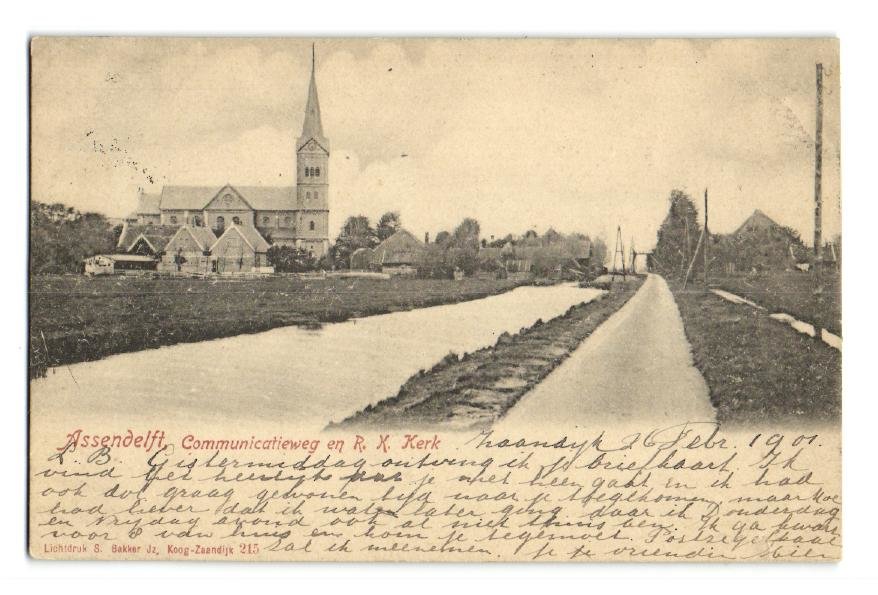 Assendelft, Communicatieweg en R. K. Kerk
Zaandijk 26 Febr. 1901.
L. B. Gistermiddag ontving ik je briefkaart. Ik
vind het heerlijk dat je met heen gaat en ik had
ook dol graag gewonen tijd naar je toegekomen, maar
had liever dat ik wat later ging, daar ik Donderdag
en Vrijdag avond ook al niet thuis ben. Ik ga kwart
voor van huis en kom je tegemoet. Postzegel
zal ik meenemen. Je te vriendin
Lichtdruk S. Bakker Jz, Koog-Zaandijk 215